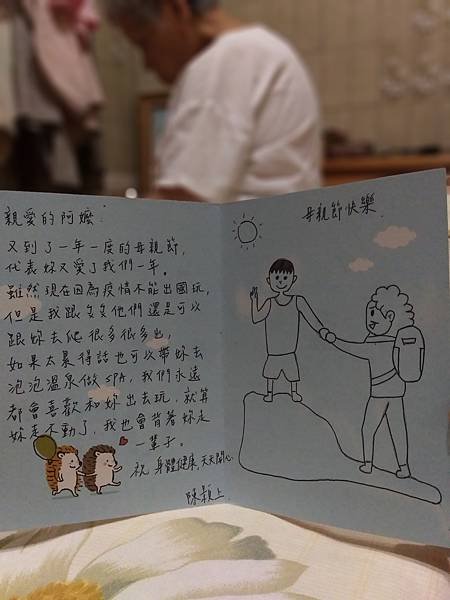 親愛的阿嬤:
又到了一年一度的母親節,
代表妳又愛了我們一年。
雖然現在因為疫情不能出國玩,
但是我跟爸爸他們還是可以
跟妳去爬很多很多山,
如果太累得話也可以帶妳去
泡泡溫泉做SPA,我們永遠
都會喜歡和妳出去玩,就算
妳走不動了,我也會背著妳走
一輩子。
祝 身體健康,天天開心
陳穎上
母親節快樂